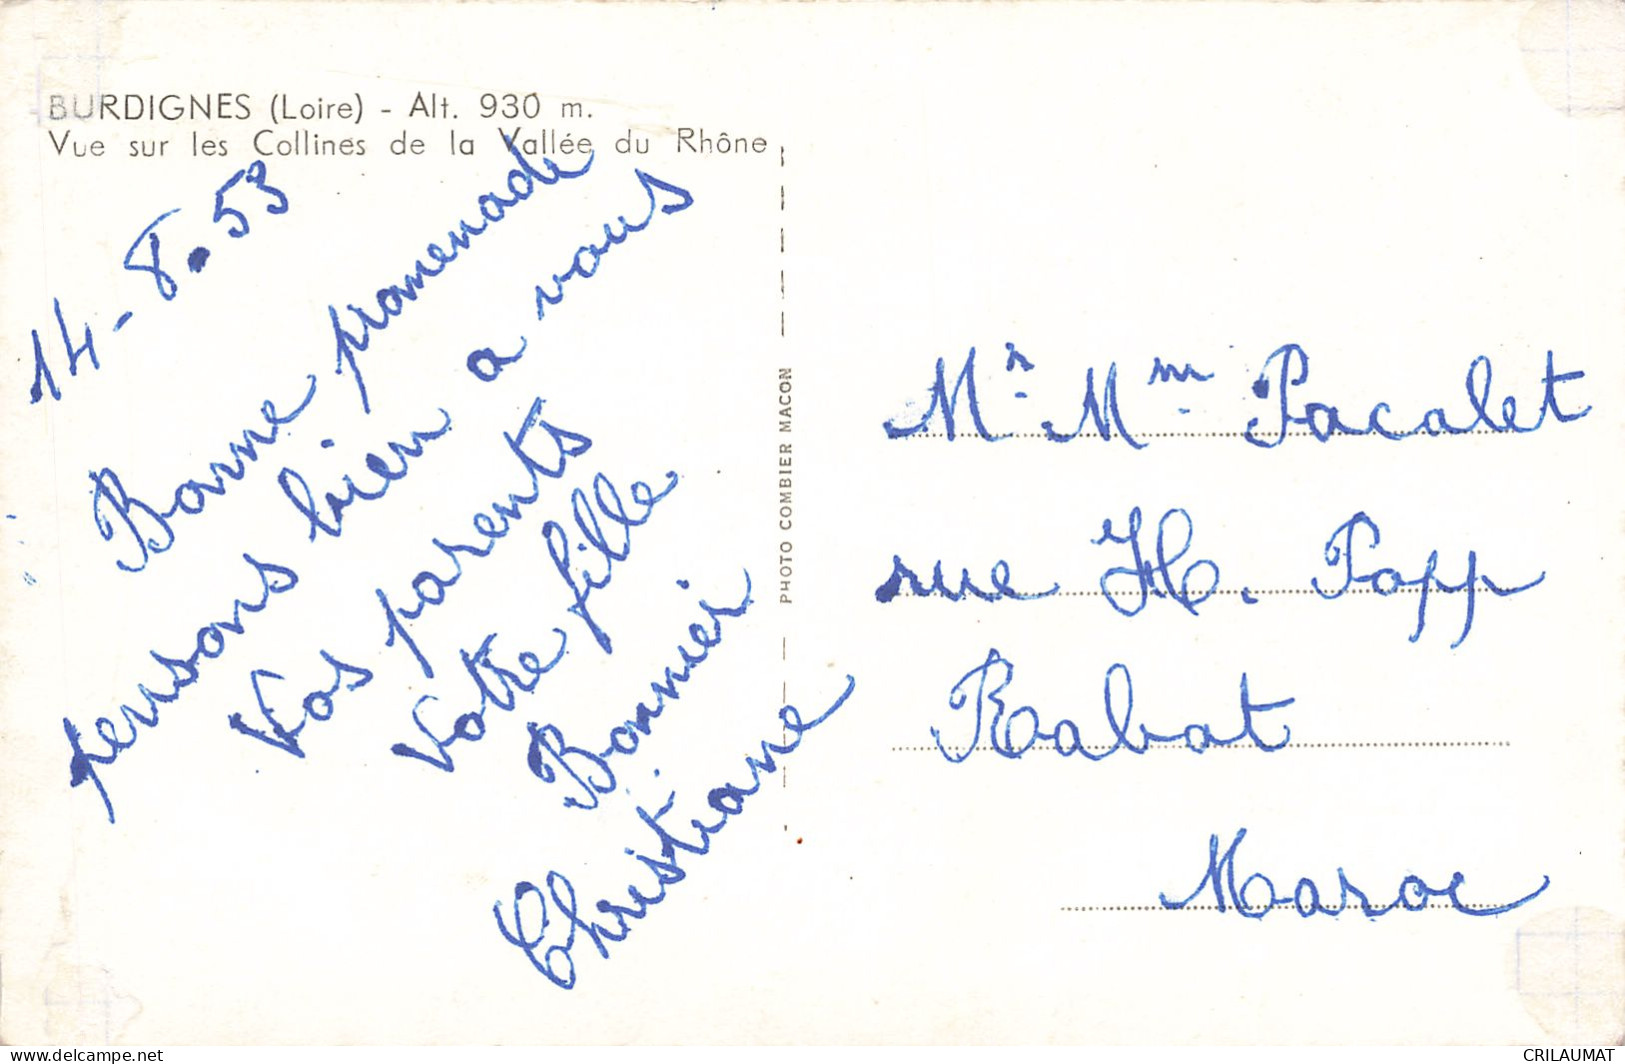 BURDIGNES (Loire) - Alt. 930 m.
Vue sur les Collines de la Vallée du Rhône
14-8.53
Bonne promenade
pensons bien a vous
Vos parents
Votre fille
Bonnier
Christiane
PHOTO COMBIER MACON
Mr. Mme Pacalet
rue H. Popp
Rabat
Maroc
www.delcampe.net
CRILAUMAT